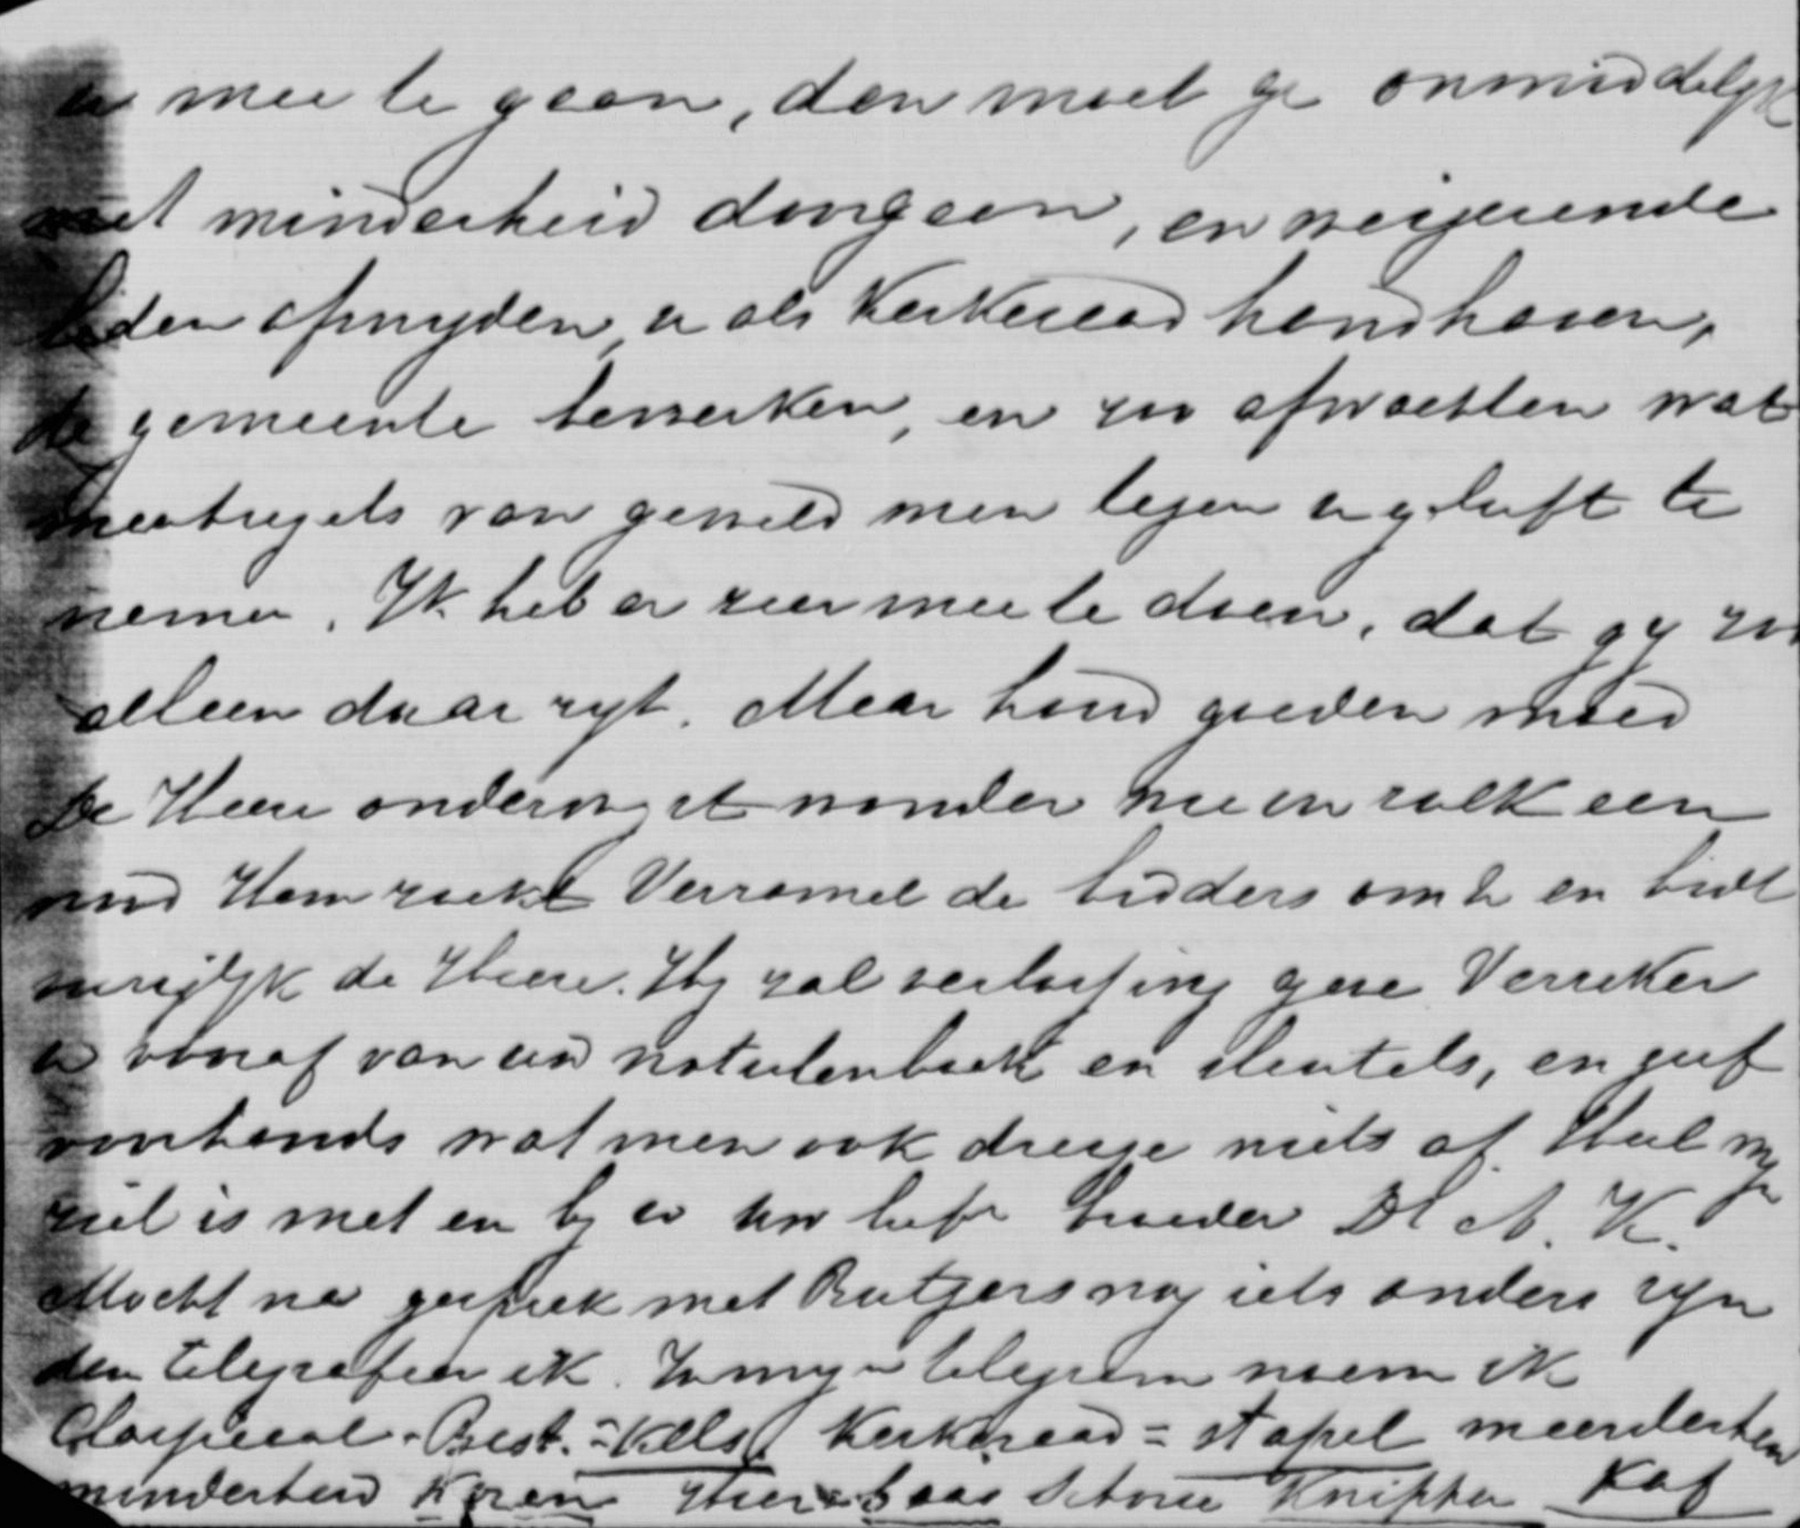 u mee te gaan, dan moet ge onmiddelyk
met minderheid doorgaan, en weigerende
leden afsnyden, u als Kerkeraad handhaven,
de gemeente bewerken, en zoo afwachten wat
maatregels van geweld men tegen u gelieft te
nemen. Ik heb er zeer mee te doen, dat gy zoo
alleen daar zyt. Maar houd goeden moed
De Heere onderwyst wonder wie en volk een
Hem zoekt Verzamel de broeders om u en bidt
vuriglyk de Heere. Hy zal verlossing geve Verzeker
u vooraf van uw notulenboek en sleutels, en geef
voorhands wat men ook dreige niets af. Heel myn
ziel is met en by u uw liefh broeder Dr A. K.
Mocht na gesprek met Rutgers nog iets anders zyn
dan telegrafeer ik. In myn telegram noem ik
Classicaal-Best. = Kelst Kerkeraad = stapel meerderheid
minderheid Koren Heer = baas Schorse Knippen Kaf